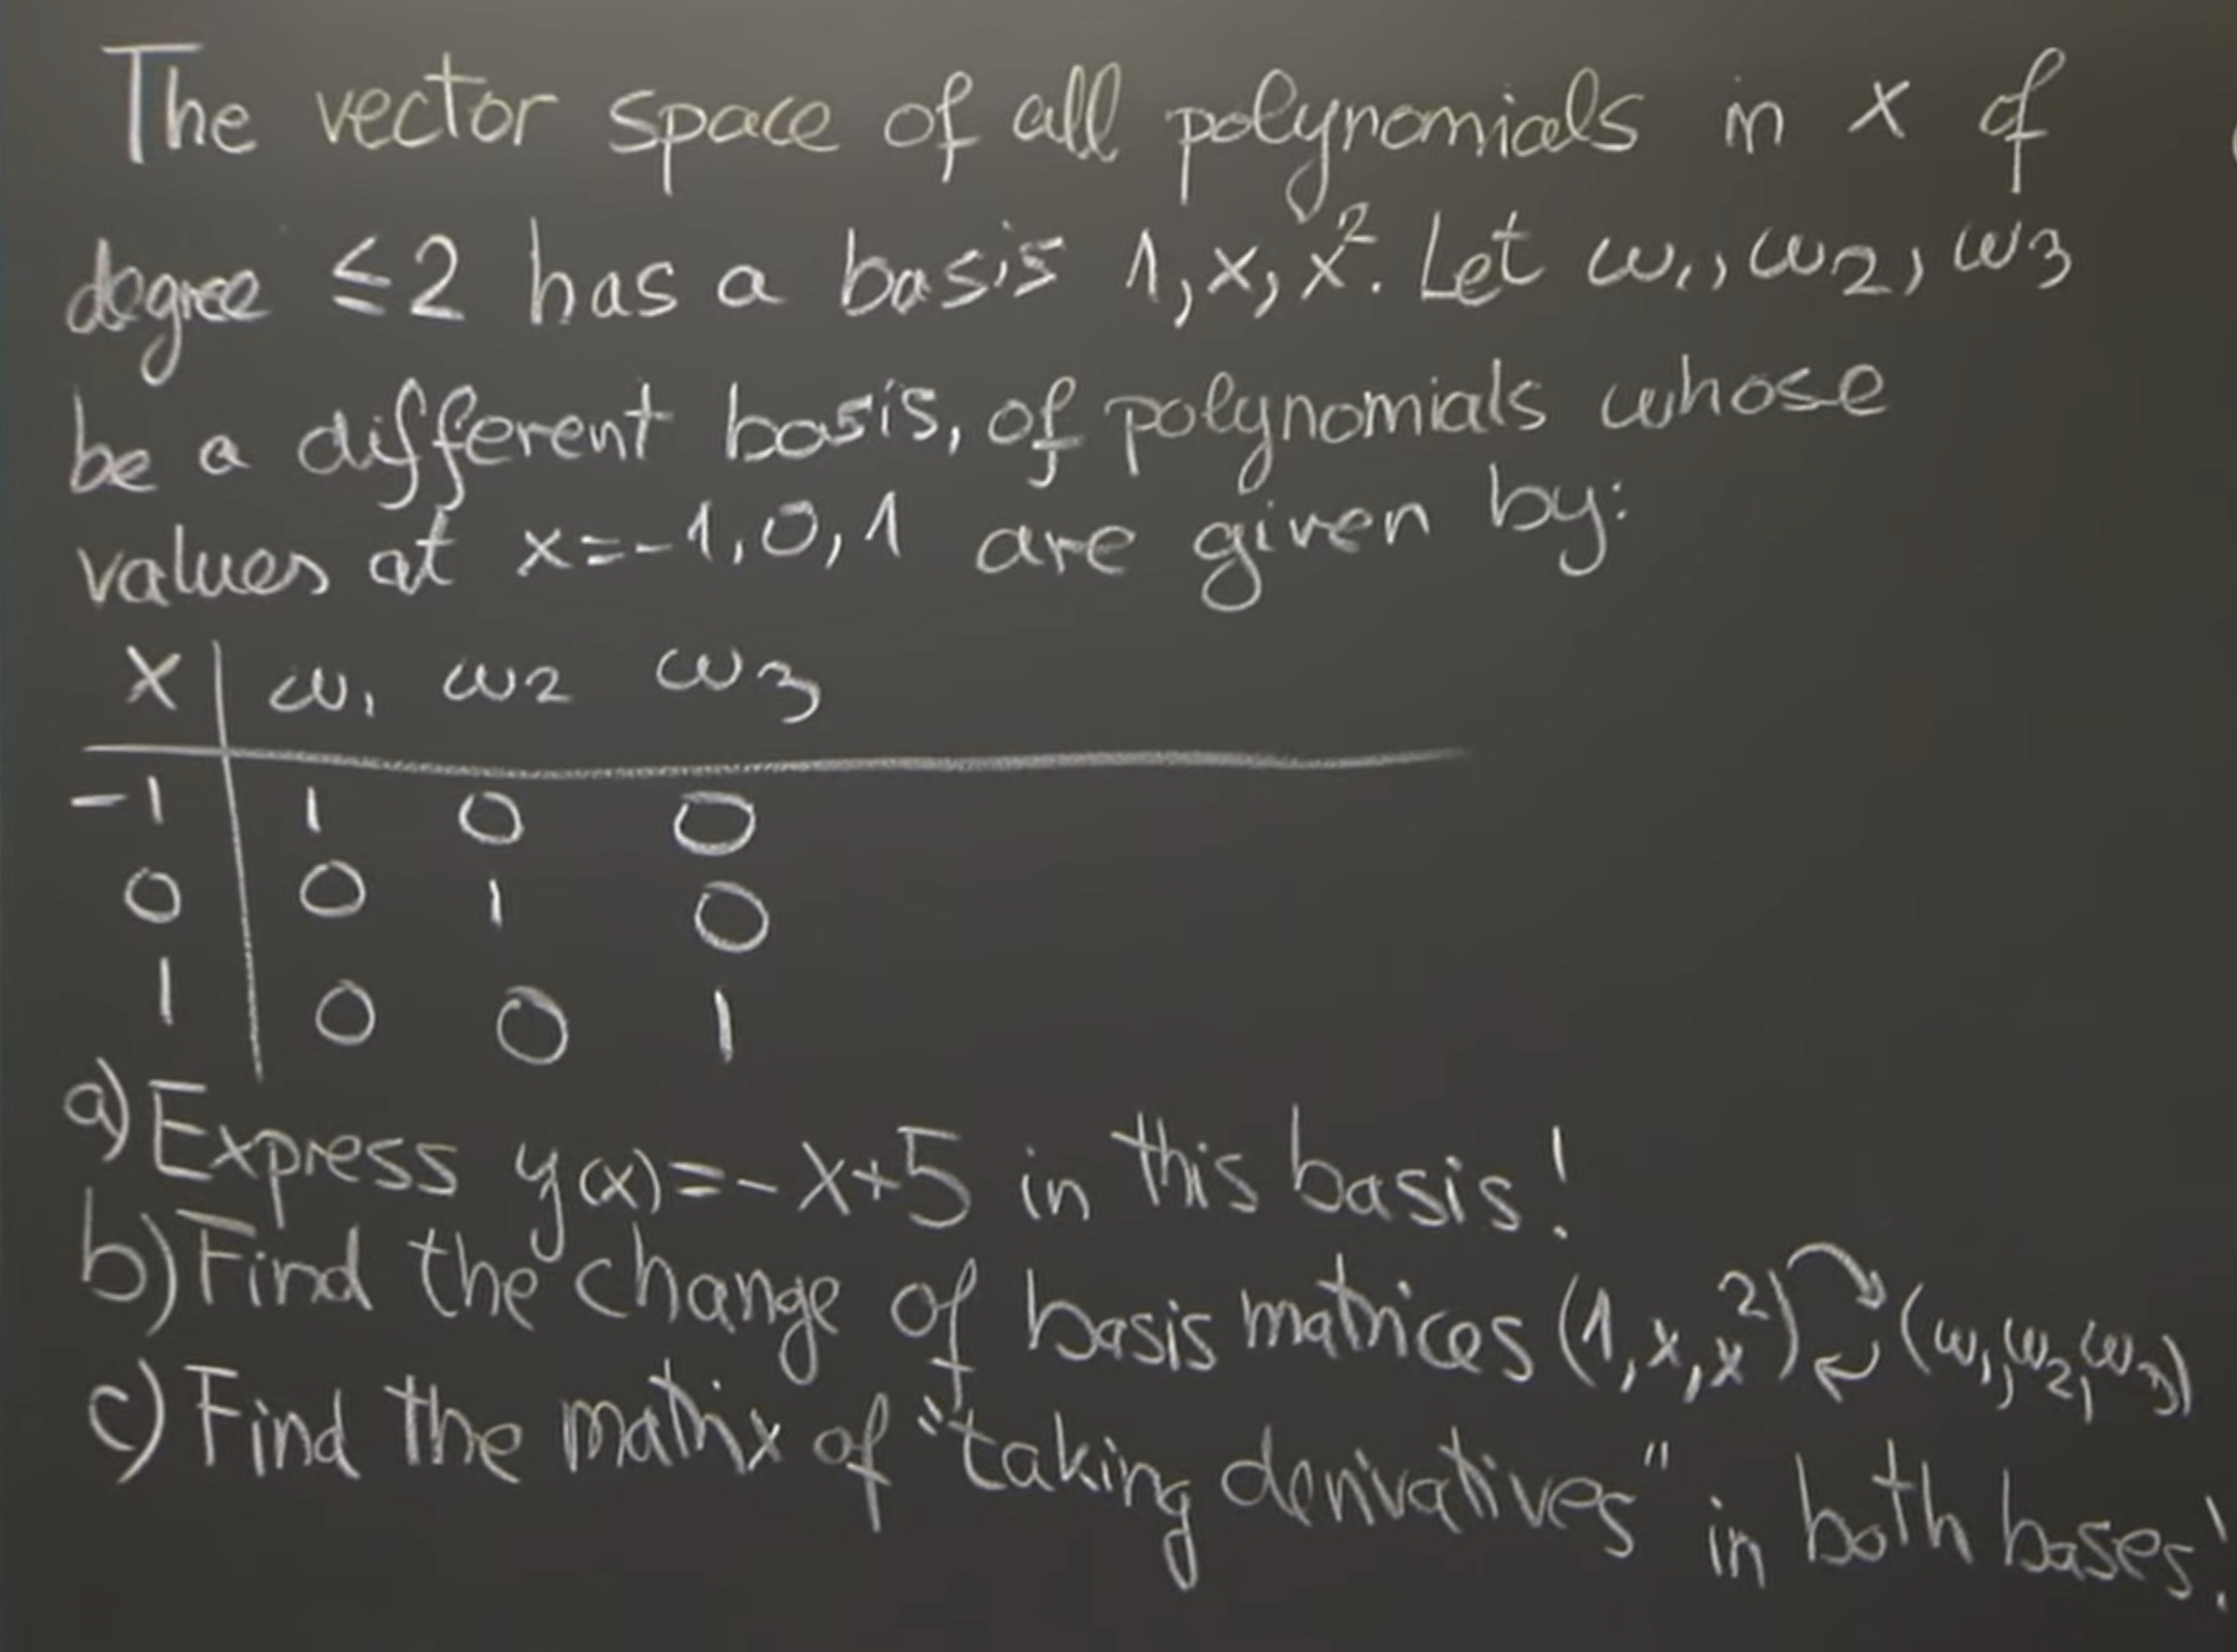 The vector space of all polynomials in x of
degree ≤2 has a basis 1, x, x². Let w₁, w₂, w₃
be a different basis, of polynomials whose
values at x=-1, 0, 1 are given by:
x | w₁ w₂ w₃
-1 | 1 0 0
0 | 0 1 0
1 | 0 0 1
a) Express y(x)=-x+5 in this basis!
b) Find the change of basis matrices (1, x, x²) ⤵ ↩ (w₁, w₂, w₃)
c) Find the matrix of "taking derivatives" in both bases!